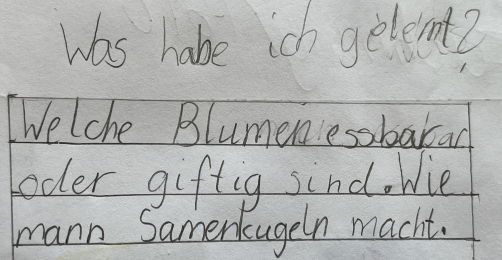 Was habe ich gelernt?
Welche Blumen essbar
oder giftig sind. Wie
mann Samenkugeln macht.